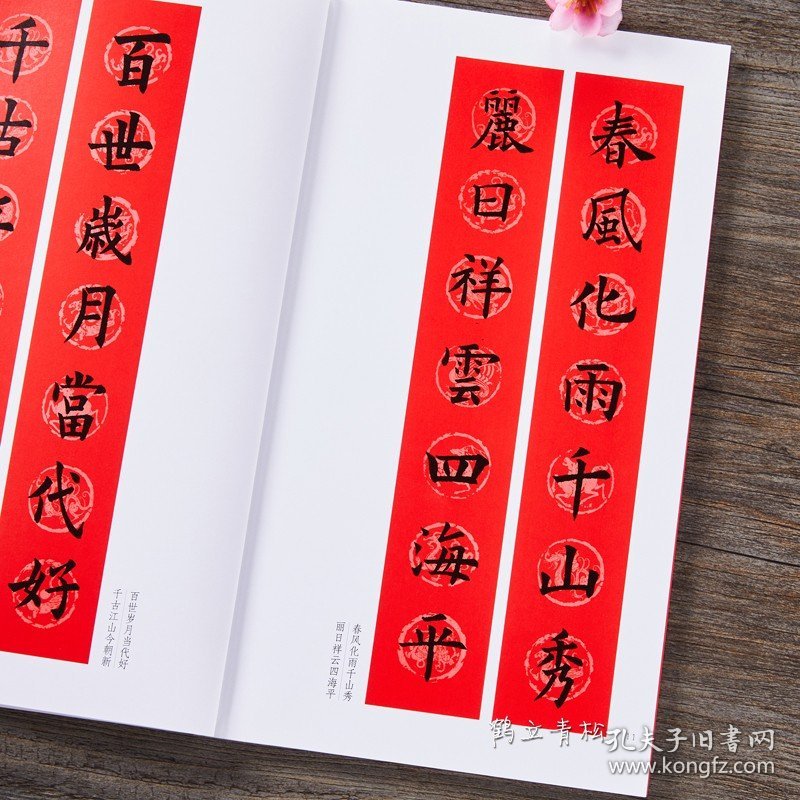 春風化雨千山秀
麗日祥雲四海平
春风化雨千山秀
丽日祥云四海平
百世歲月當代好
千古
百世岁月当代好
千古江山今朝新
鹤立青松
孔夫子旧书网
www.kongfz.com